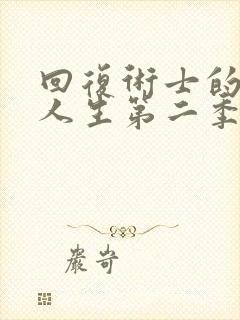 回復術士的
人生第二季
嚴岢